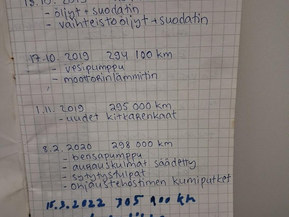 - öljyt + suodatin
- vaihteistoöljyt + suodatin
17.10. 2019 294 100 km
- vesipumppu
- moottorinlämmitin
1.11. 2019 295 000 km
- uudet kitkarenkaat
8.2. 2020 298 000 km
- bensapumppu
- aurauskulmat säädetty
- sytytystulpat
- ohjaustehostimen kumiputket
15.3.2022 305 km